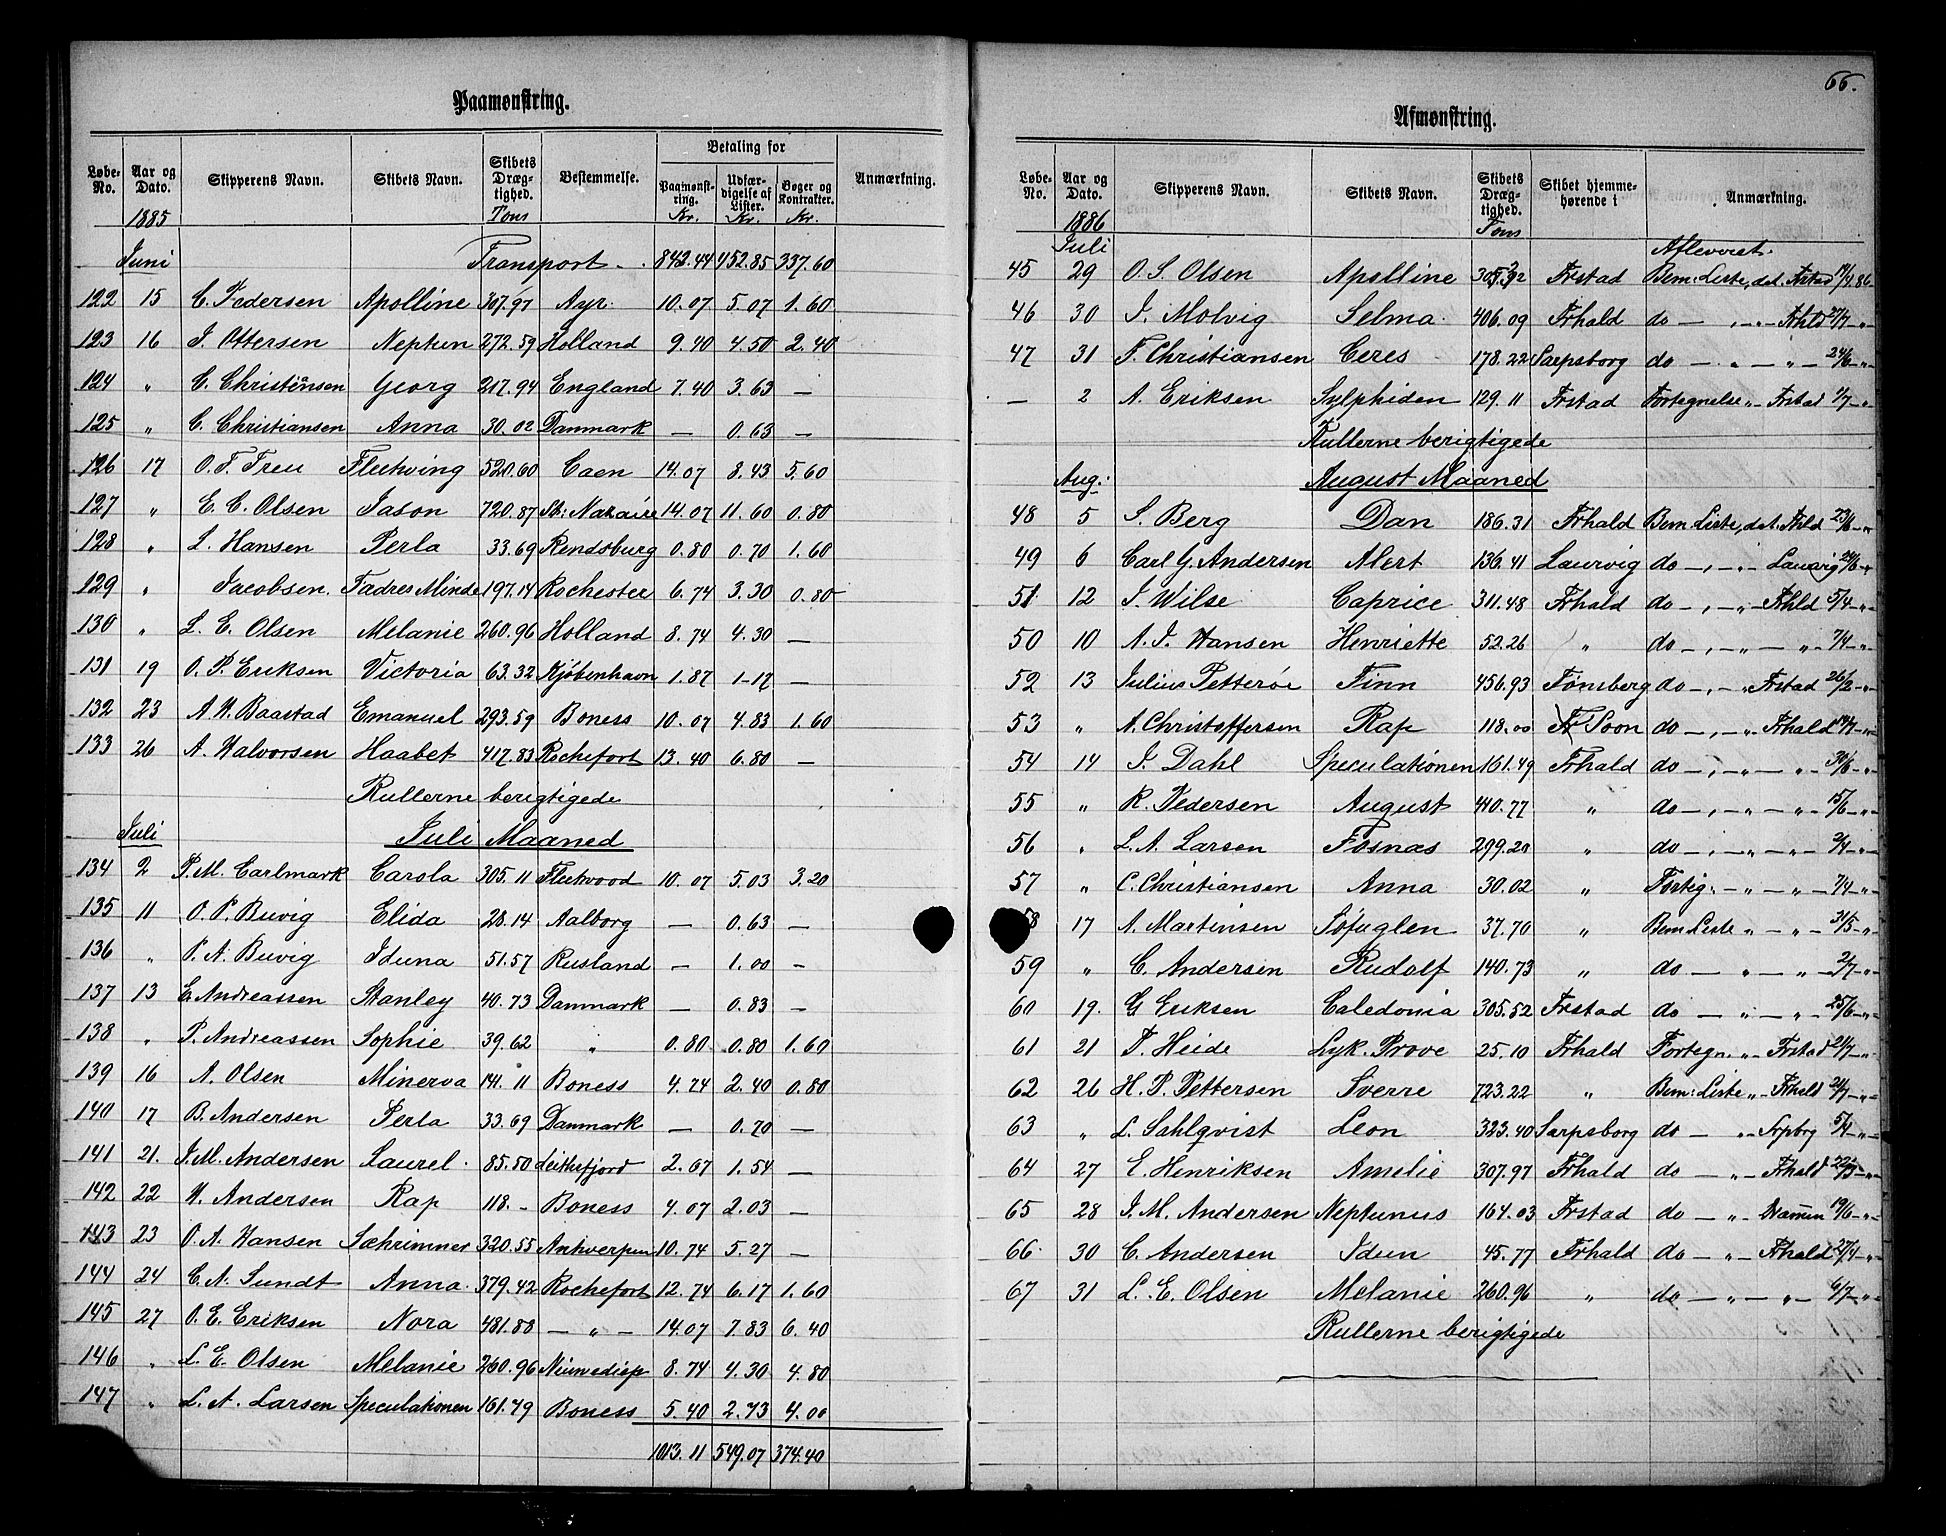 66.
Paamønstring.
Løbe-No. | Aar og Dato. | Skipperens Navn. | Skibets Navn. | Skibets Drægtighed. | Bestemmelse. | Betaling for Paamønstring. | Udfærdigelse af Lister. | Bøger og Kontrakter. | Anmærkning.
1885 | Tons | Kr. | Kr. | Kr.
Juni | Transport | 843.44 | 452.85 | 337.60
122 | 15 | C. Pedersen | Apolline | 307.97 | Ayr | 10.07 | 5.07 | 1.60
123 | 16 | J. Ottersen | Neptun | 272.59 | Holland | 9.40 | 4.50 | 2.40
124 | " | C. Christensen | Georg | 217.94 | England | 7.40 | 3.63 | —
125 | " | C. Christiansen | Anna | 30.02 | Danmark | — | 0.63 | —
126 | 17 | O. F. Treu | Fleetwing | 520.60 | Caen | 14.07 | 8.43 | 5.60
127 | " | E. C. Olsen | Jason | 720.87 | St: Nazaire | 14.07 | 11.60 | 0.80
128 | " | L. Hansen | Perla | 33.69 | Rendsburg | 0.80 | 0.70 | 1.60
129 | " | Jacobsen | Fadres Minde | 197.14 | Rochester | 6.74 | 3.30 | 0.80
130 | " | L. E. Olsen | Melanie | 260.96 | Holland | 8.74 | 4.30 | —
131 | 19 | O. P. Eriksen | Victoria | 63.32 | Kjøbenhavn | 1.87 | 1.17 | —
132 | 23 | A. H. Baastad | Emanuel | 293.59 | Boness | 10.07 | 4.83 | 1.60
133 | 26 | A. Halvorsen | Haabet | 417.83 | Rochefort | 13.40 | 6.80 | —
Rullerne berigtigede
Juli | Juli Maaned
134 | 2 | P. M. Carlmark | Carsla | 305.11 | Fleetwood | 10.07 | 5.03 | 3.20
135 | 11 | O. P. Buvig | Elida | 28.14 | Aalborg | — | 0.63 | —
136 | " | P. A. Buvig | Iduna | 51.57 | Rusland | — | 1.00 | —
137 | 13 | E. Andreassen | Stanley | 40.73 | Danmark | — | 0.83 | —
138 | " | P. Andreassen | Sophie | 39.62 | " | 0.80 | 0.80 | 1.60
139 | 16 | A. Olsen | Minerva | 141.11 | Boness | 4.74 | 2.40 | 0.80
140 | 17 | B. Andersen | Perla | 33.69 | Danmark | — | 0.70 | —
141 | 21. | J. M. Andersen | Laurel | 85.50 | Leithsfjord | 2.67 | 1.54 | —
142 | 22 | H. Andersen | Rap | 118.- | Boness | 4.07 | 2.03 | —
143 | 23 | O. A. Hansen | Sæhrimner | 320.55 | Antwerpen | 10.74 | 5.27 | —
144 | 24 | C. A. Sundt | Anna | 379.42 | Rochefort | 12.74 | 6.17 | 1.60
145 | 27 | O. E. Eriksen | Nora | 481.88 | — " — | 14.07 | 7.83 | 6.40
146 | " | L. E. Olsen | Melanie | 260.96 | Nieuwediep | 8.74 | 4.30 | 4.80
147 | " | L. A. Larsen | Speculationen | 161.49 | Boness | 5.40 | 2.73 | 4.00
1013.11 | 549.07 | 374.40
Afmønstring.
Løbe-No. | Aar og Dato. | Skipperens Navn. | Skibets Navn. | Skibets Drægtighed. | Skibet hjemmehørende i | Anmærkning.
1886 | Tons
Juli | Afleveret.
45 | 29 | O. S. Olsen | Apolline | Frstad | Bem: Liste, dat. Frstad 19/4 86
46 | 30 | J. Molvig | Selma | 406.09 | Frhald | do — , — " — Frhld 27/7 — "
47 | 31 | F. Christiansen | Ceres | 178.22 | Sarpsborg | do — " — " — 24/6 — "
— | 2 | A. Eriksen | Sylphiden | 129.11 | Frstad | Fortegnelse " — Frstad 2/7 — "
Rullerne berigtigede
Aug: | August Maaned
48 | 5 | S. Berg | Dan | 186.31 | Frhald | Bem: Liste, dat. Frhld 23/6 — "
49 | 6 | Carl G. Andersen | Alert | 136.41 | Laurvig | do — , — " — Laurvig 24/6 — "
51 | 12 | J. Wilse | Caprice | 311.48 | Frhald | do — , — " — Frhld 5/4 — "
50 | 10 | A. J. Hansen | Henriette | 52.26 | " | do — , — " — " — 7/4 — "
52 | 13 | Julius Petterøe | Finn | 456.93 | Tønsberg | do — , — " Frstad 26/2 — "
53 | " | A. Christoffersen | Rap | 118.00 | Soon | do — , — " Frhald — "
54 | 14 | J. Dahl | Speculationen | 161.49 | Frhald | do — , — " — " — 30/6 — "
55 | " | R. Pedersen | August | 440.77 | " | do — , — " — " — 15/6 — "
56 | " | L. A. Larsen | Fosnæs | 299.20 | " | do — , — " — " — 2/4 — "
57 | " | C. Christiansen | Anna | 30.02 | " | Forteg: — " — " — 7/4 — "
58 | 17 | A. Martinsen | Søfuglen | 37.70 | " | Bem: Liste " — " — 31/5 — "
59 | " | C. Andersen | Rudolf | 140.73 | " | do — " — " — 2/7 — "
60 | 19. | G. Eriksen | Caledonia | 305.52 | Frstad | do — " — " — 25/6 — "
61 | 21 | T. Heide | Lyk. Prøve | 25.10 | Frhald | Fortegn. " — Frstad 21/7 — "
62 | 26 | H. P. Pettersen | Sverre | 723.22 | " | Bem: Liste " — Frhald 24/7 — "
63 | " | L. Sahlqvist | Leon | 323.40 | Sarpsborg | do — " — Srpbrg 5/4 — "
64 | 27 | E. Henriksen | Amelie | 307.97 | Frhald | do — " — Frhald 22/3 — "
65 | 28 | J. M. Andersen | Neptunus | 164.03 | Frstad | do — " — 19/6 — "
66 | 30 | C. Andersen | Idun | 45.77 | Frhald | do — " — Frhald 27/4 — "
67 | 31 | L. E. Olsen | Melanie | 260.96 | " | do — " — " — 6/7 — "
Rullerne berigtigede